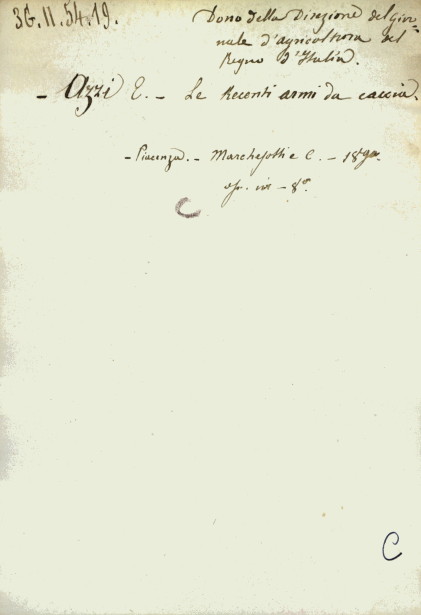 3G.II.54.19.
Dono della Direzione del gior-
nale d'agricoltura del
Regno d'Italia.
- Azzi E. - Le Recenti armi da caccia.
- Piacenza. - Marchesotti e C. -
in - 8°
C
C